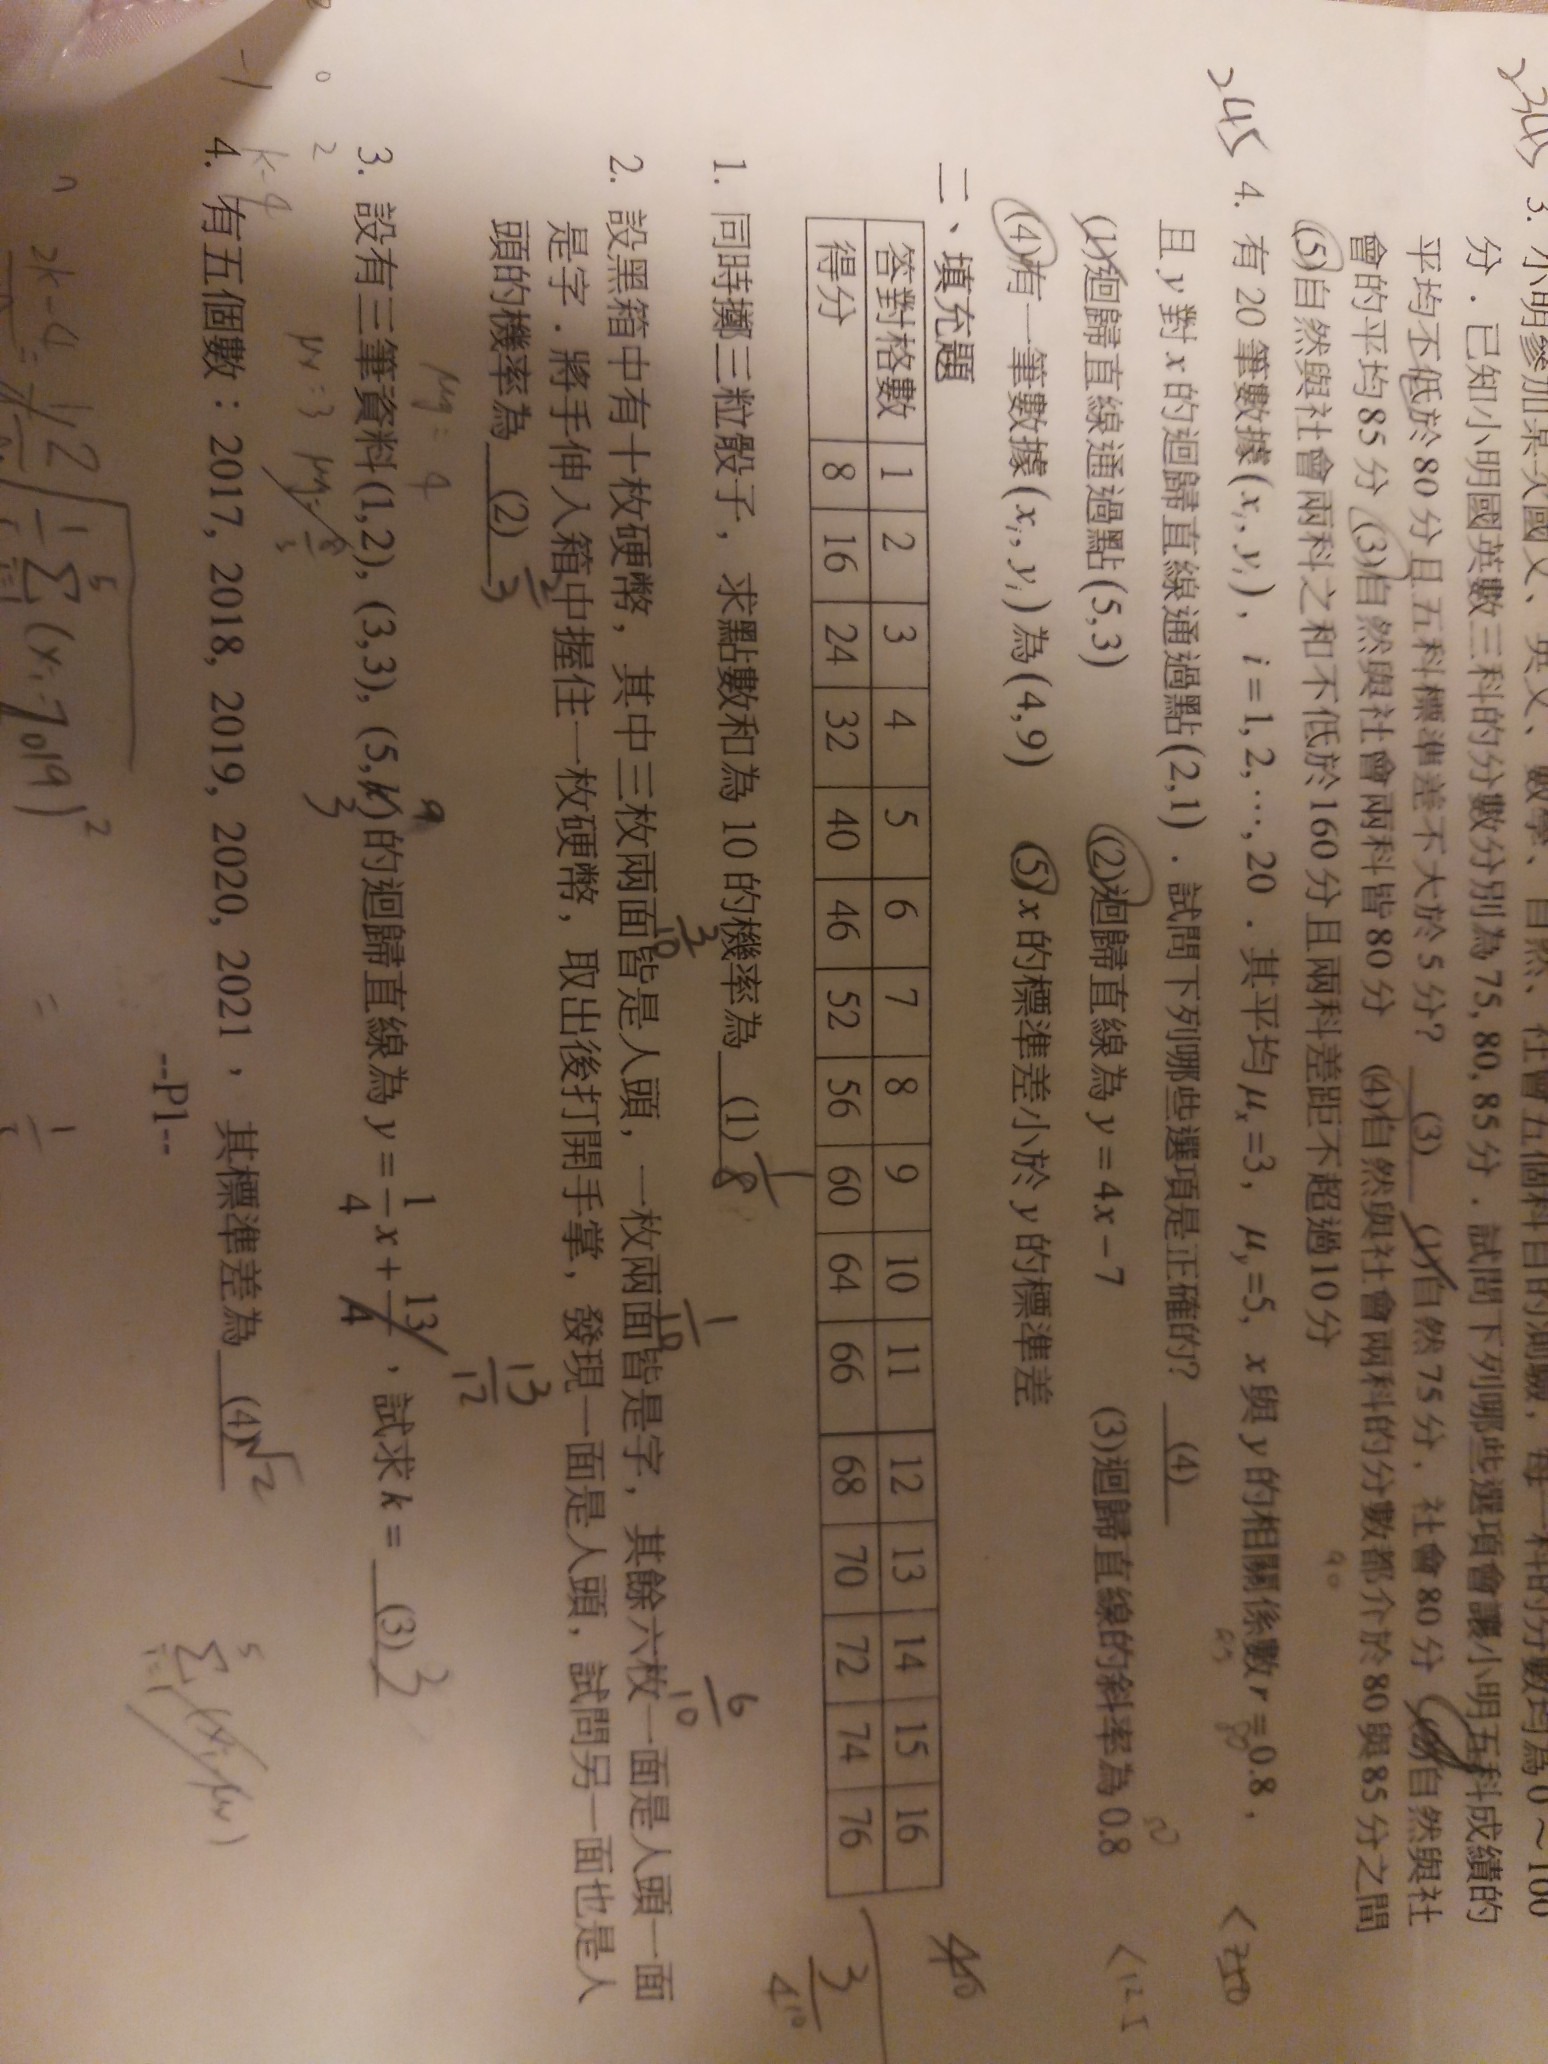 345 3. 小明參加某次國文、英文、數學、自然、社會五個科目的測驗，每一科的分數均為0～100
分．已知小明國英數三科的分數分別為75, 80, 85分．試問下列哪些選項會讓小明五科成績的
平均不低於80分且五科標準差不大於5分? (3) (1)自然75分、社會80分 自然與社
會的平均85分 (3)自然與社會兩科皆80分 (4)自然與社會兩科的分數都介於80與85分之間
(5)自然與社會兩科之和不低於160分且兩科差距不超過10分
245 4. 有20筆數據(xᵢ, yᵢ)，i = 1, 2, ⋯, 20．其平均μₓ=3，μᵧ=5，x與y的相關係數r=0.8，
且y對x的迴歸直線通過點(2,1)．試問下列哪些選項是正確的? (4)
(1)迴歸直線通過點(5,3) (2)迴歸直線為y = 4x − 7 (3)迴歸直線的斜率為0.8
(4)有一筆數據(xᵢ, yᵢ)為(4,9) (5)x的標準差小於y的標準差
二、填充題
答對格數 1 2 3 4 5 6 7 8 9 10 11 12 13 14 15 16
得分 8 16 24 32 40 46 52 56 60 64 66 68 70 72 74 76
1. 同時擲三粒骰子，求點數和為10的機率為 (1) 1/8
3/10 1/10 6/10
2. 設黑箱中有十枚硬幣，其中三枚兩面皆是人頭，一枚兩面皆是字，其餘六枚一面是人頭一面
是字．將手伸入箱中握住一枚硬幣，取出後打開手掌，發現一面是人頭，試問另一面也是人
頭的機率為 (2) 2/3
μy = 4
13/12
3. 設有三筆資料(1,2), (3,3), (5,k)的迴歸直線為y = 1/4 x + 13/4，試求k = (3) 3
μx = 3
4. 有五個數：2017, 2018, 2019, 2020, 2021，其標準差為 (4) √2
--P1--